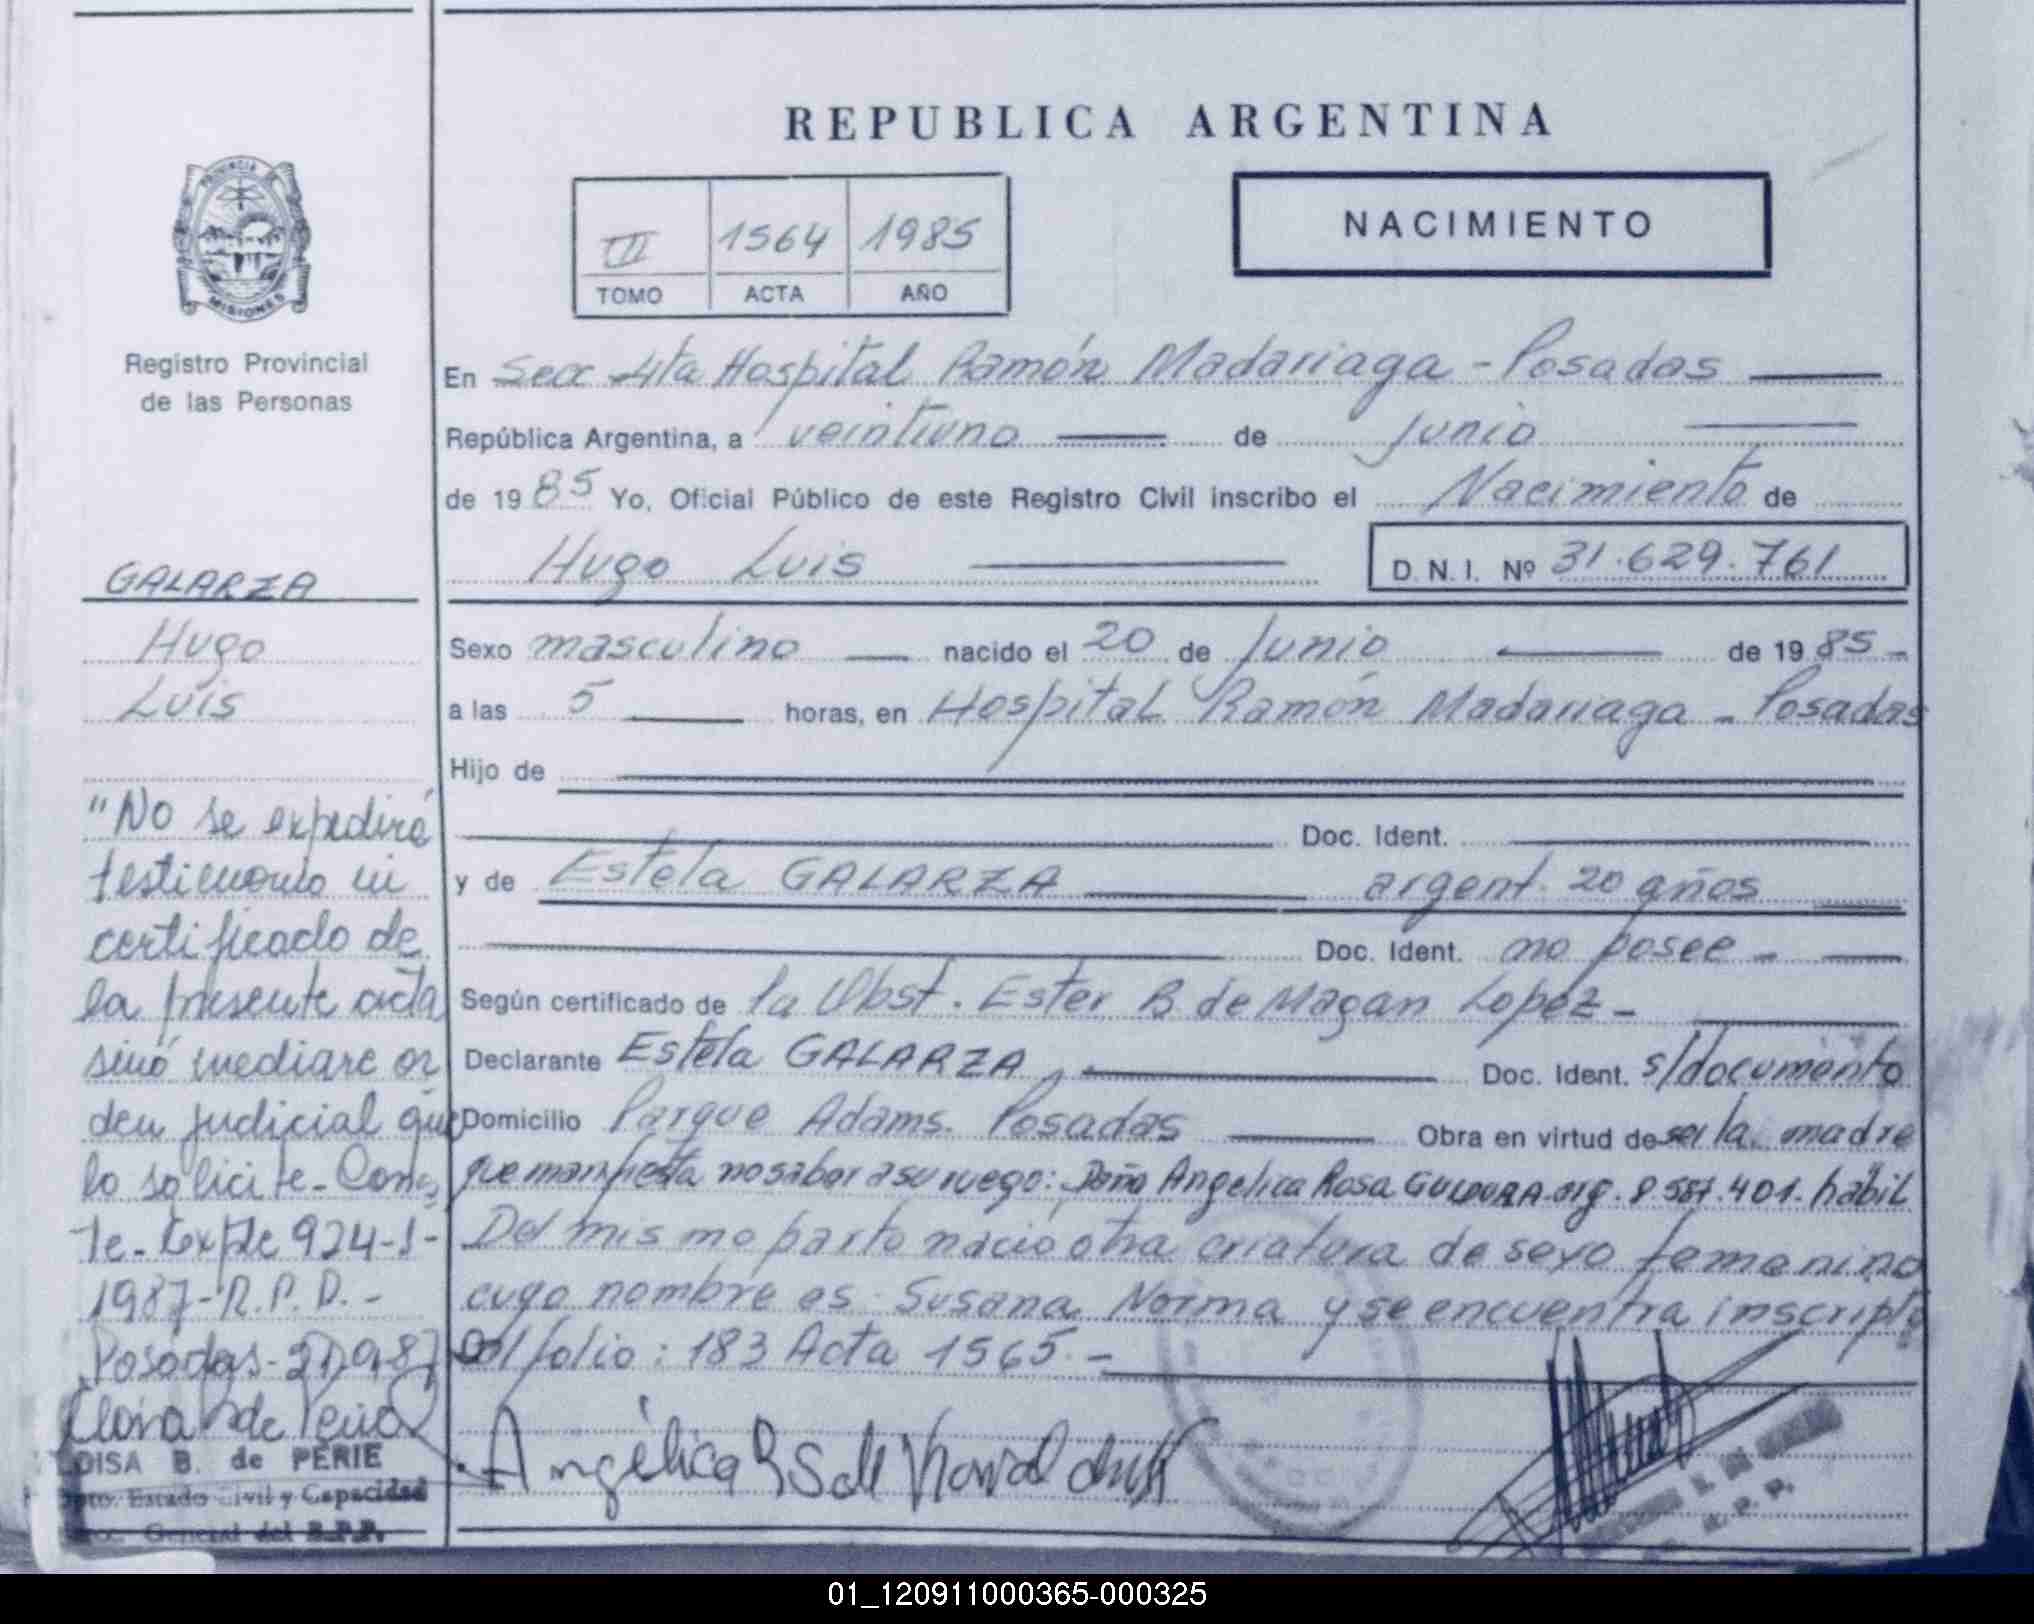 REPUBLICA ARGENTINA
NACIMIENTO
III 1564 1985
TOMO ACTA AÑO
PROVINCIA DE
MISIONES
Registro Provincial
de las Personas
GALARZA
Hugo
Luis
"No se expedirá
testimonio ni
certificado de
la presente acta
sinó mediare or
den judicial que
lo solicite - Cons
te - Expte 924-
1987 - R.P.P. -
Posadas -
OISA B. de PERIE
Dpto. Estado Civil y Capacidad
General del R.P.P.
En Secc 4ta Hospital Ramón Madariaga - Posadas
República Argentina, a veintiuno de junio
de 1985 Yo, Oficial Público de este Registro Civil inscribo el Nacimiento de
Hugo Luis D.N.I. Nº 31.629.761
Sexo masculino nacido el 20 de Junio de 1985 -
a las 5 horas, en Hospital Ramón Madariaga - Posadas
Hijo de
Doc. Ident.
y de Estela GALARZA argent. 20 años
Doc. Ident. no posee -
Según certificado de la Obst. Ester B. de Magan Lopez -
Declarante Estela GALARZA Doc. Ident. s/documento
Domicilio Parque Adams. Posadas Obra en virtud de ser la madre
que manifiesta no saber a su ruego: Doña Angelica Rosa arg. 8.587.401. hábil
Del mismo parto nació otra criatura de sexo femenino
cuyo nombre es Susana Norma y se encuentra inscripta
al folio: 183 Acta 1565. -
Angélica
R.P.P.
01_120911000365-000325